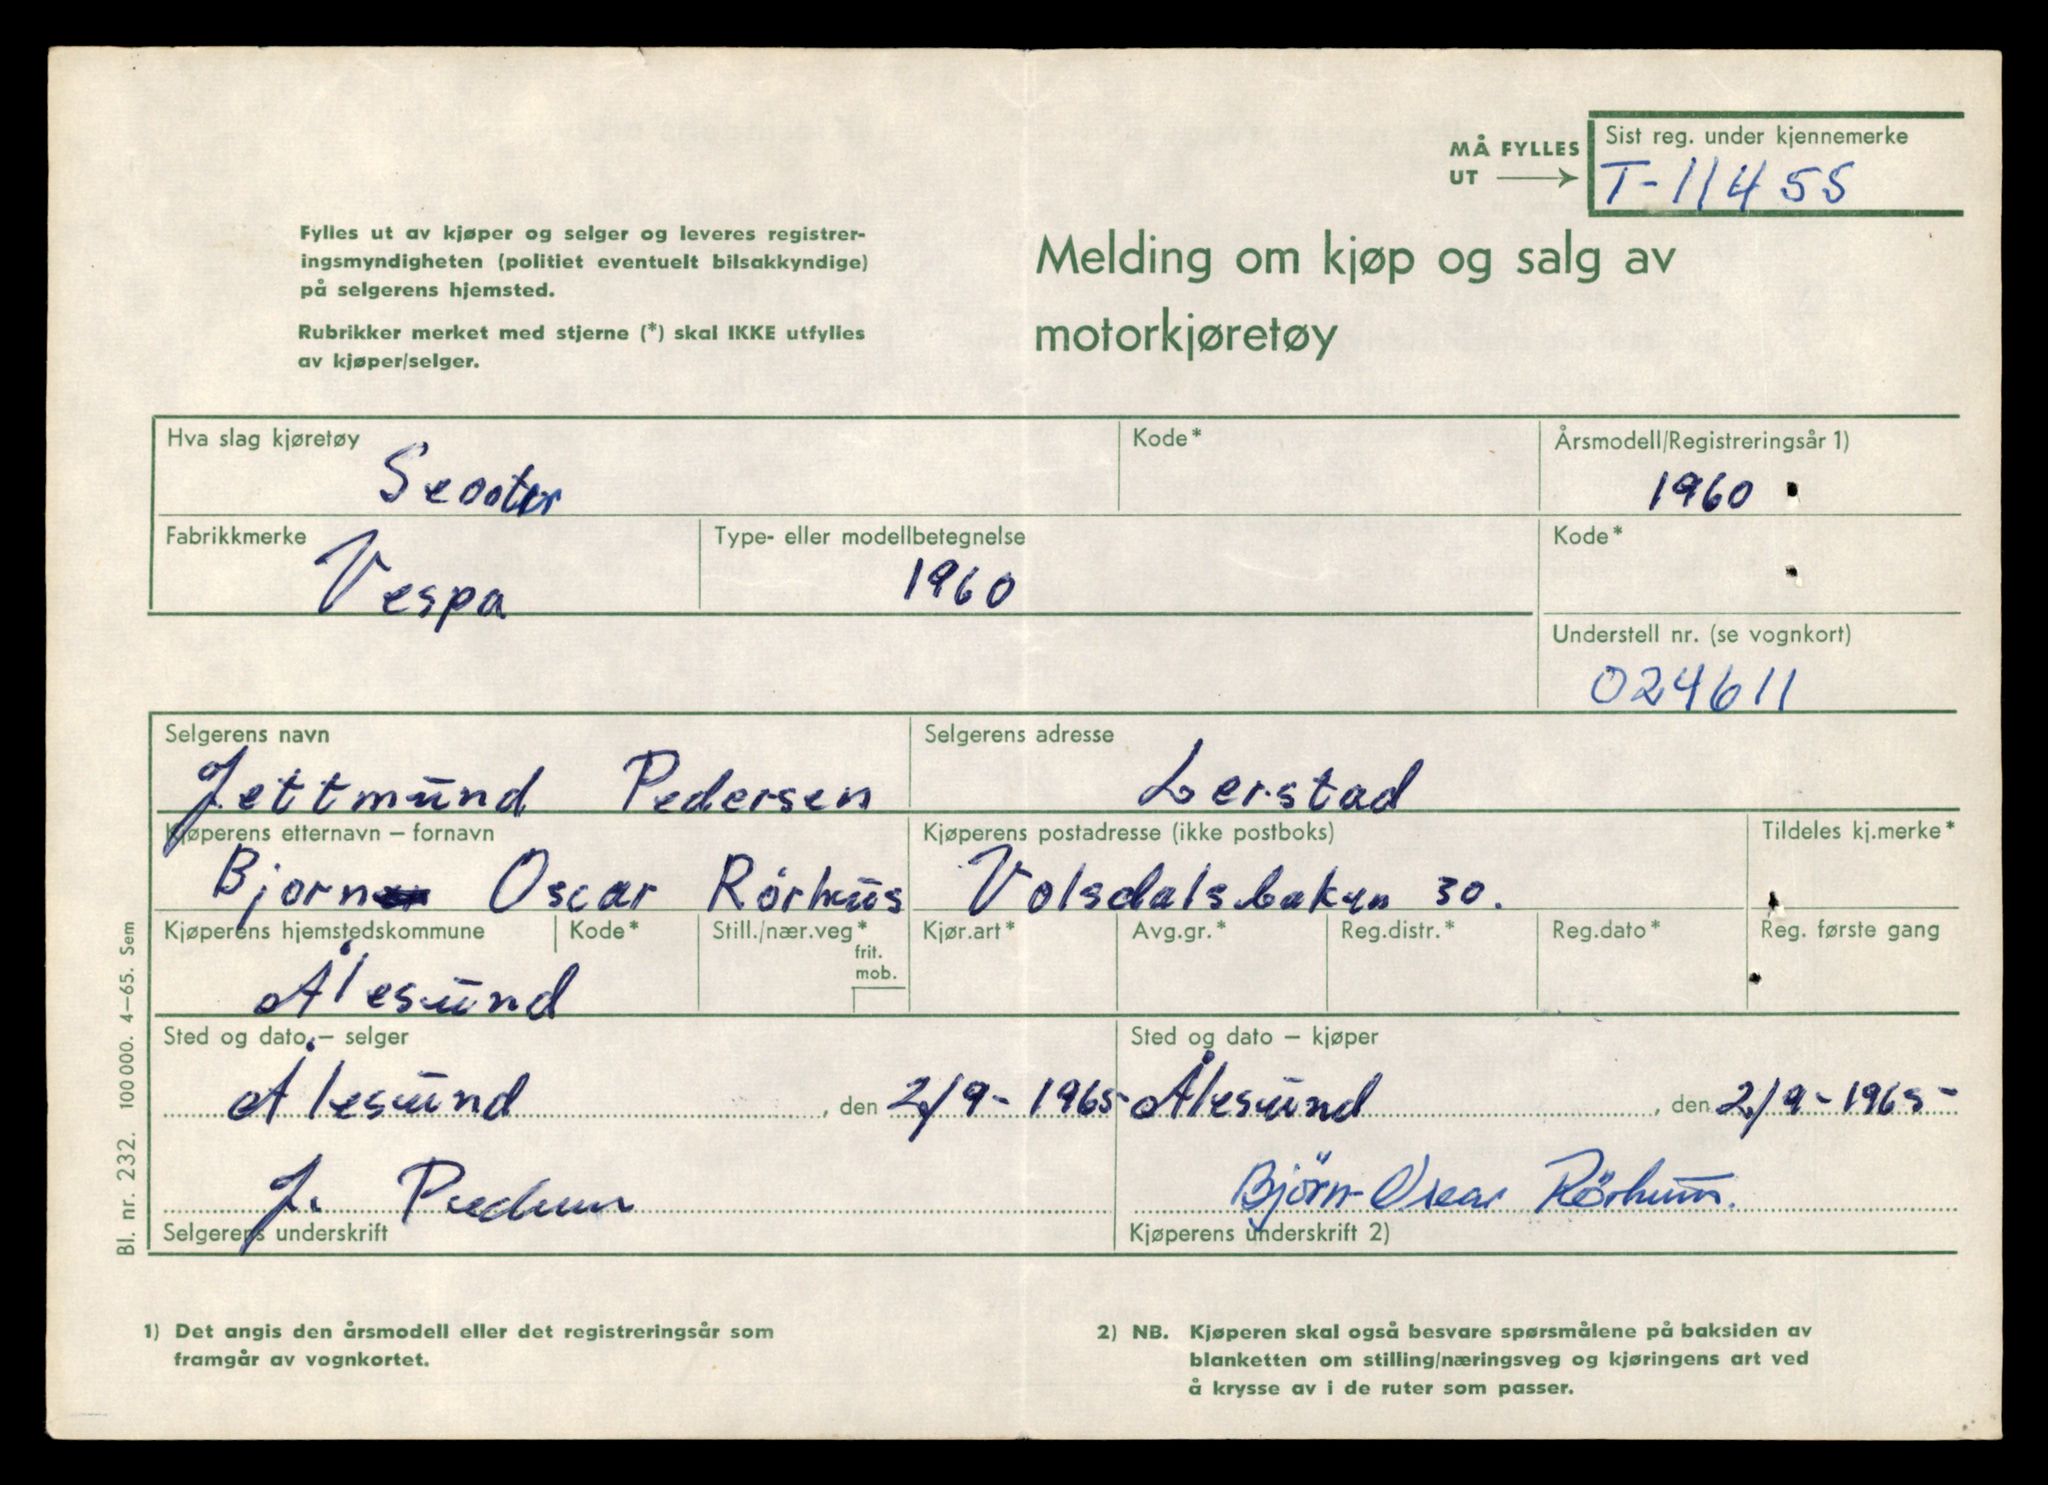 MÅ FYLLES
UT
Sist reg. under kjennemerke
T-11455
Fylles ut av kjøper og selger og leveres registrer-
ingsmyndigheten (politiet eventuelt bilsakkyndige)
på selgerens hjemsted.
Rubrikker merket med stjerne (*) skal IKKE utfylles
av kjøper/selger.
Melding om kjøp og salg av
motorkjøretøy
Hva slag kjøretøy
Scooter
Kode*
Årsmodell/Registreringsår 1)
1960
Fabrikkmerke
Vespa
Type- eller modellbetegnelse
1960
Kode*
Understell nr. (se vognkort)
024611
Selgerens navn
Jettmund Pedersen
Selgerens adresse
Lerstad
Kjøperens etternavn – fornavn
Bjorn Oscar Rörhus
Kjøperens postadresse (ikke postboks)
Volsdalsbaken 30.
Tildeles kj.merke*
Kjøperens hjemstedskommune
Ålesund
Kode*
Still./nær.veg*
frit.
mob.
Kjør.art*
Avg.gr.*
Reg.distr.*
Reg.dato*
Reg. første gang
Sted og dato – selger
Ålesund, den 2/9-1965-
Sted og dato – kjøper
Ålesund, den 2/9-1965-
J. Pedersen
Selgerens underskrift
Björn-Oscar Rörhus.
Kjøperens underskrift 2)
Bl. nr. 232. 100 000. 4–65. Sem
1) Det angis den årsmodell eller det registreringsår som
framgår av vognkortet.
2) NB. Kjøperen skal også besvare spørsmålene på baksiden av
blanketten om stilling/næringsveg og kjøringens art ved
å krysse av i de ruter som passer.